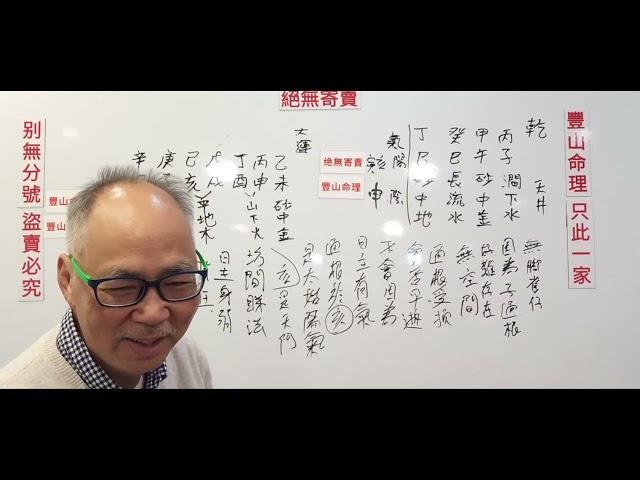 絕無寄賣
豐山命理 只此一家
乾 天井 無脚雀仔
丙子 澗下水 因為子通根
甲午 砂中金 存在
癸巳 長流水 無空間
丁巳 砂中地 通根受損
氣陽 陰
申
會否早逝
不會因為
日主有氣
通根於亥
是太始陽氣
絕無寄賣
豐山命理
大運
乙未 砂中金 亥是天門
丙申 山下火 坊間睇法
丁酉 日主身弱
戊戌 平地木
己亥
庚
辛
豐山
豐山
别無分號 盜賣必究